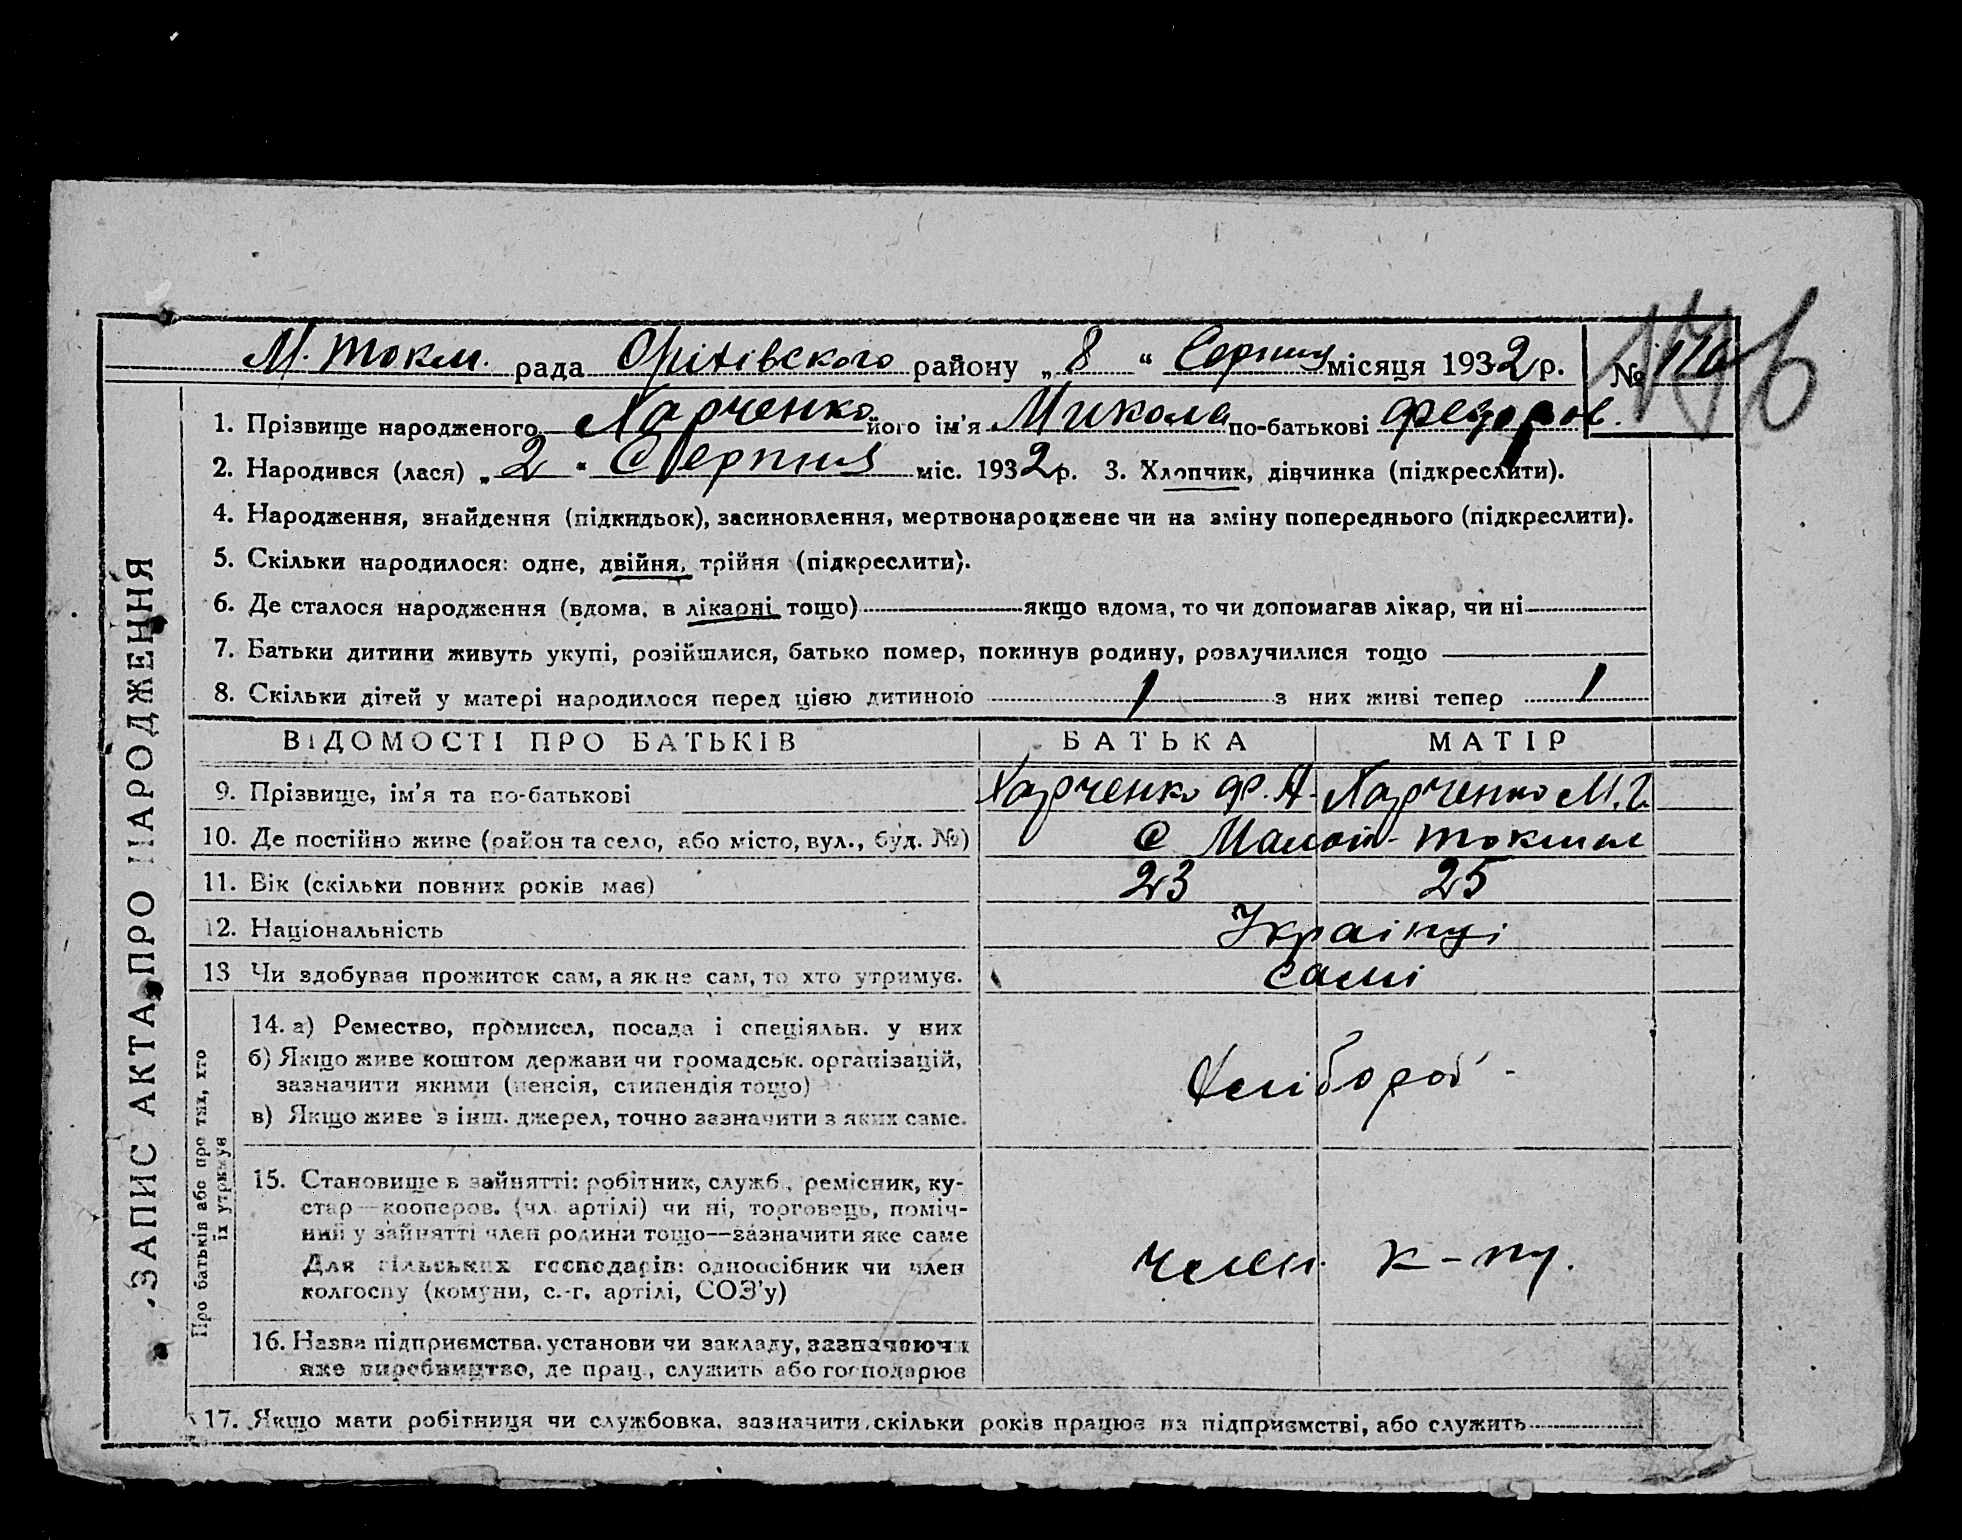 М. Токм. рада Оріхівського району „ 8 “ Серпня місяця 1932 р. № 176
176
1. Прізвище народженого Харченко його ім'я Микола по-батькові Федоров.
2. Народився (лася) „ 2 " Серпня міс. 1932 р. 3. Хлопчик, дівчинка (підкреслити).
4. Народження, знайдення (підкидьок), засиновлення, мертвонароджене чи на зміну попереднього (підкреслити).
5. Скільки народилося: одне, двійня, трійня (підкреслити).
6. Де сталося народження (вдома, в лікарні тощо) якщо вдома, то чи допомагав лікар, чи ні
7. Батьки дитини живуть укупі, розійшлися, батько помер, покинув родину, розлучилися тощо
8. Скільки дітей у матері народилося перед цією дитиною 1 з них живі тепер 1
ВІДОМОСТІ ПРО БАТЬКІВ БАТЬКА МАТІР
9. Прізвище, ім'я та по-батькові Харченко Ф. А. Харченко М. Г.
10. Де постійно живе (район та село, або місто, вул., буд. №) с Малой-Токмак
11. Вік (скільки повних років має) 23 25
12. Національність Українці
13 Чи здобуває прожиток сам, а як не сам, то хто утримує. самі
14. а) Ремество, промисел, посада і спеціяльн. у них
б) Якщо живе коштом держави чи громадськ. організацій,
зазначити якими (пенсія, стипендія тощо)
в) Якщо живе з інш. джерел, точно зазначити з яких саме.
Хлібороб -
15. Становище в зайнятті: робітник, служб., ремісник, ку-
стар—кооперов. (чл. артілі) чи ні, торговець, поміч-
ний у зайнятті член родини тощо—зазначити яке саме
Для сільських господарів: одноосібник чи член
колгоспу (комуни, с.-г. артілі, СОЗ'у)
член. к-пу.
16. Назва підприємства, установи чи закладу, зазначаючи
яке виробництво, де прац., служить або господарює
17. Якщо мати робітниця чи службовка, зазначити, скільки років працює на підприємстві, або служить
ЗАПИС АКТА ПРО НАРОДЖЕННЯ
Про батьків або про тих, хто
їх утримує